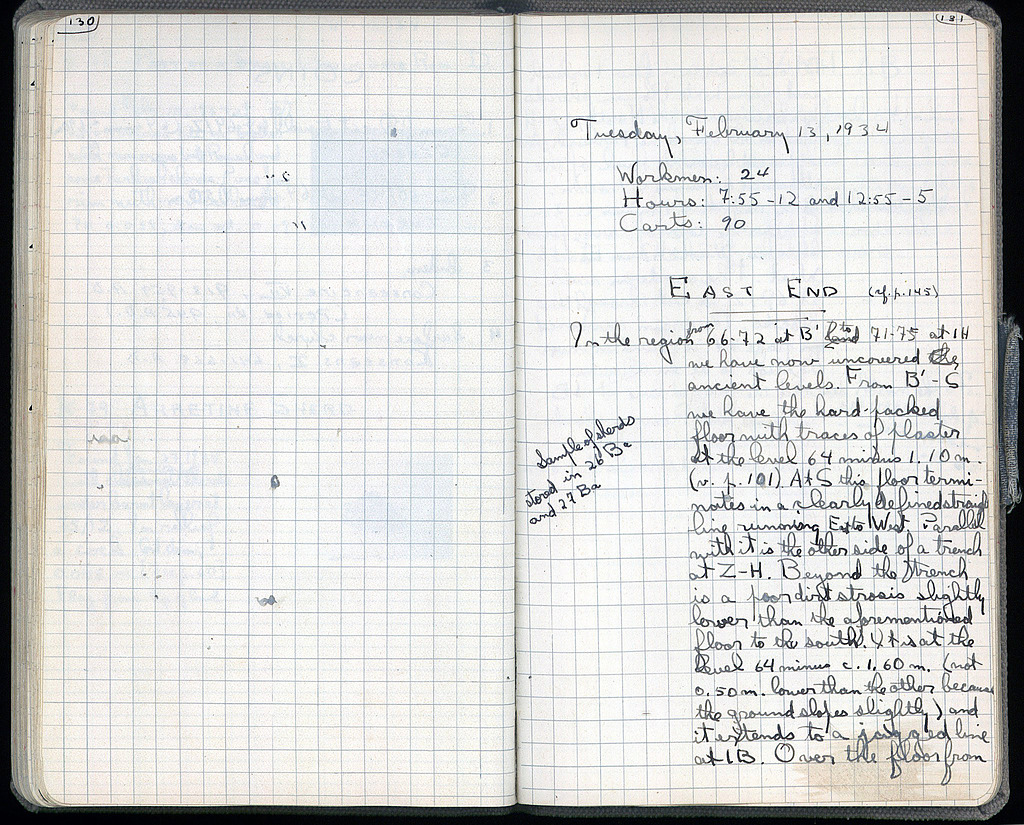 130
131
Tuesday, February 13, 1934
Workmen: 24
Hours: 7:55-12 and 12:55-5
Carts: 90
EAST END (cf. p. 145)
In the region from 66-72 at B' to 71-75 at IH
we have now uncovered the
ancient levels. From B'-S
we have the hard-packed
floor with traces of plaster
at the level 64 minus 1.10 m.
(v. p. 101). At S this floor termi-
nates in a clearly defined straight
line running E to West. Parallel
with it is the other side of a trench
at Z-H. Beyond the trench
is a poor dirt strosis slightly
lower than the aforementioned
floor to the south. It is at the
level 64 minus c. 1.60 m. (not
0.50 m. lower than the other because
the ground slopes slightly) and
it extends to a jagged line
at IB. Over the floor from
Sample of sherds
stored in 26 Ba
and 27 Ba